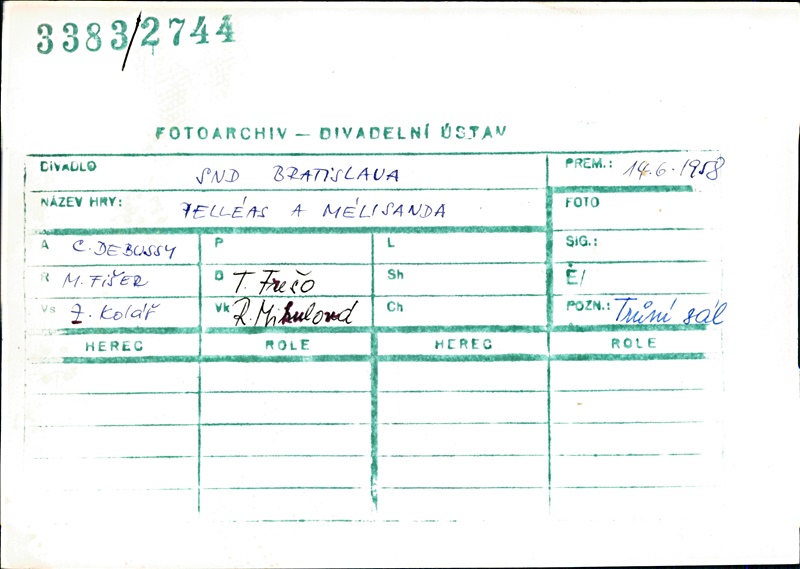 3383/2744
FOTOARCHIV — DIVADELNÍ ÚSTAV
DIVADLO SND BRATISLAVA PREM.: 14.6.1958
NÁZEV HRY: PELLÉAS A MÉLISANDA FOTO
A C. DEBUSSY P L SIG.:
R M. FIŠER D T. Frešo Sh Č/
Vs Z. Kolář Vk R. Mikulová Ch POZN.: Trůní sál
HEREC ROLE HEREC ROLE